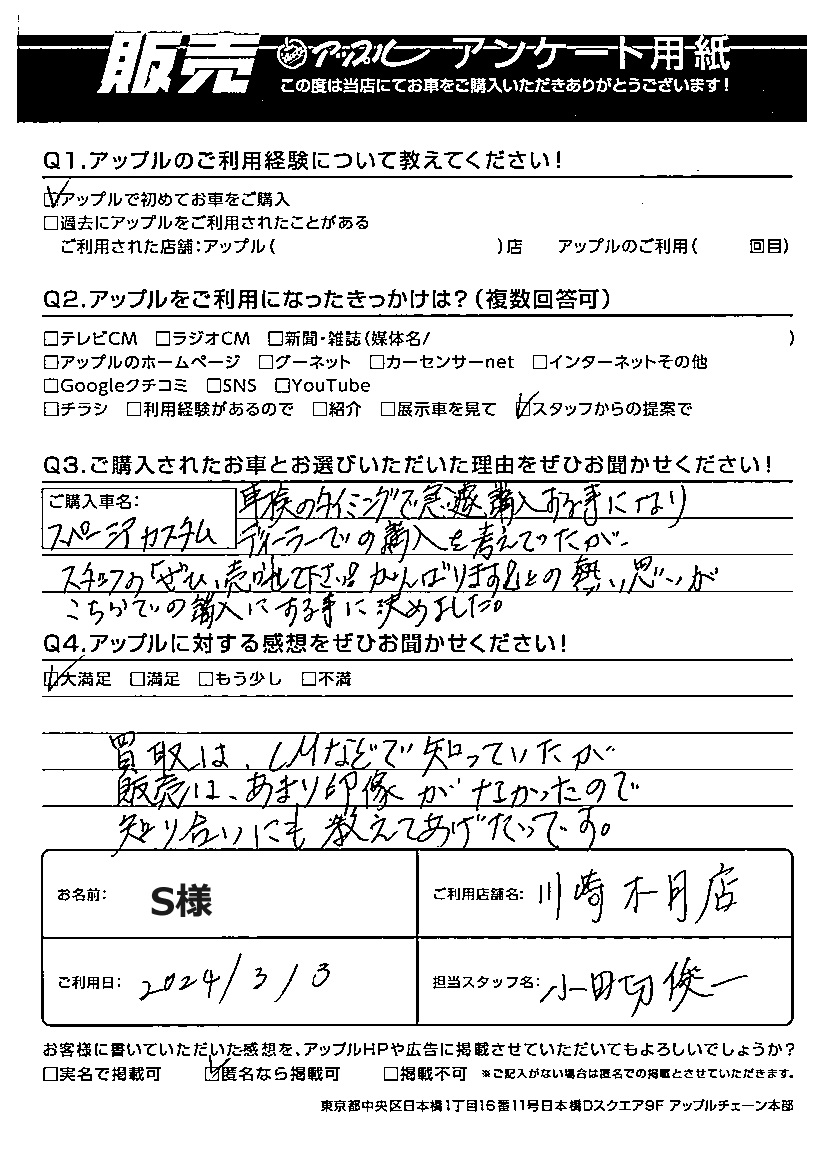 販売 アップル アンケート用紙
この度は当店にてお車をご購入いただきありがとうございます!
Q1.アップルのご利用経験について教えてください!
☑アップルで初めてお車をご購入
□過去にアップルをご利用されたことがある
ご利用された店舗:アップル( )店 アップルのご利用( 回目)
Q2.アップルをご利用になったきっかけは?(複数回答可)
□テレビCM □ラジオCM □新聞・雑誌(媒体名/ )
□アップルのホームページ □グーネット □カーセンサーnet □インターネットその他
□Googleクチコミ □SNS □YouTube
□チラシ □利用経験があるので □紹介 □展示車を見て ☑スタッフからの提案で
Q3.ご購入されたお車とお選びいただいた理由をぜひお聞かせください!
ご購入車名: 車検のタイミングで急遽購入する事になり
スペーシアカスタム ディーラーでの購入を考えてったが、
スタッフの「ぜひ、売らせて下さい!がんばります!」との熱い思いが
こちらでの購入にする事に決めました。
Q4.アップルに対する感想をぜひお聞かせください!
☑大満足 □満足 □もう少し □不満
買取は、CMなどで知っていたが
販売は、あまり印像がなかったので
知り合いにも教えてあげたいです。
お名前: S様 ご利用店舗名: 川崎木月店
ご利用日: 2024/3/3 担当スタッフ名: 小田切俊一
お客様に書いていただいた感想を、アップルHPや広告に掲載させていただいてもよろしいでしょうか?
□実名で掲載可 ☑匿名なら掲載可 □掲載不可 ※ご記入がない場合は匿名での掲載とさせていただきます。
東京都中央区日本橋1丁目16番11号日本橋Dスクエア9F アップルチェーン本部